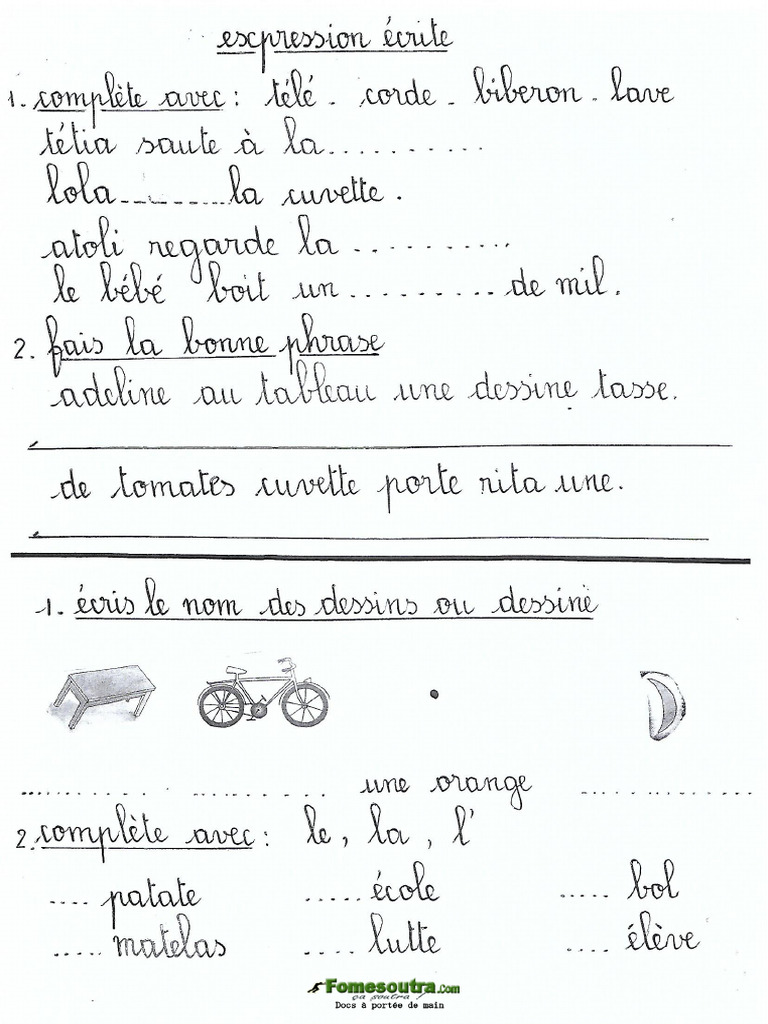 escpression écrite
1. complète avec : télé - corde - biberon - lave
tétia saute à la ..........
lola ......... la cuvette.
atoli regarde la ..........
le bébé boit un .......... de mil.
2. fais la bonne phrase
adeline au tableau une dessine tasse.
de tomates cuvette porte rita une.
1. écris le nom des dessins ou dessine
............ .......... une orange ..............
2. complète avec : le, la, l'
.... patate ..... école ..... bol
..... matelas .... lutte .... élève
Fomesoutra.com
ça soutra !
Docs à portée de main